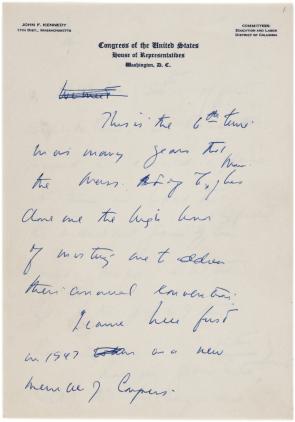 JOHN F. KENNEDY
11TH DIST., MASSACHUSETTS
COMMITTEES:
EDUCATION AND LABOR
DISTRICT OF COLUMBIA
Congress of the United States
House of Representatives
Washington, D. C.
This is the 6th time
in as many years that
the Mass.
done me the high honor
of inviting me to address
their annual convention.
I came here first
in 1947 as a new
member of Congress.